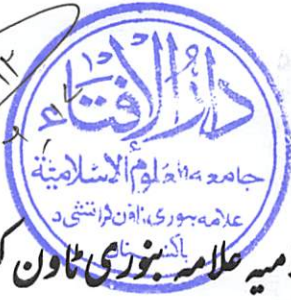 دارالافتاء
جامعہ علوم الاسلامیة
علامہ بنوری ٹاؤن کراتشی ۵
باکستان
میہ علامہ بنوری ٹاون ک